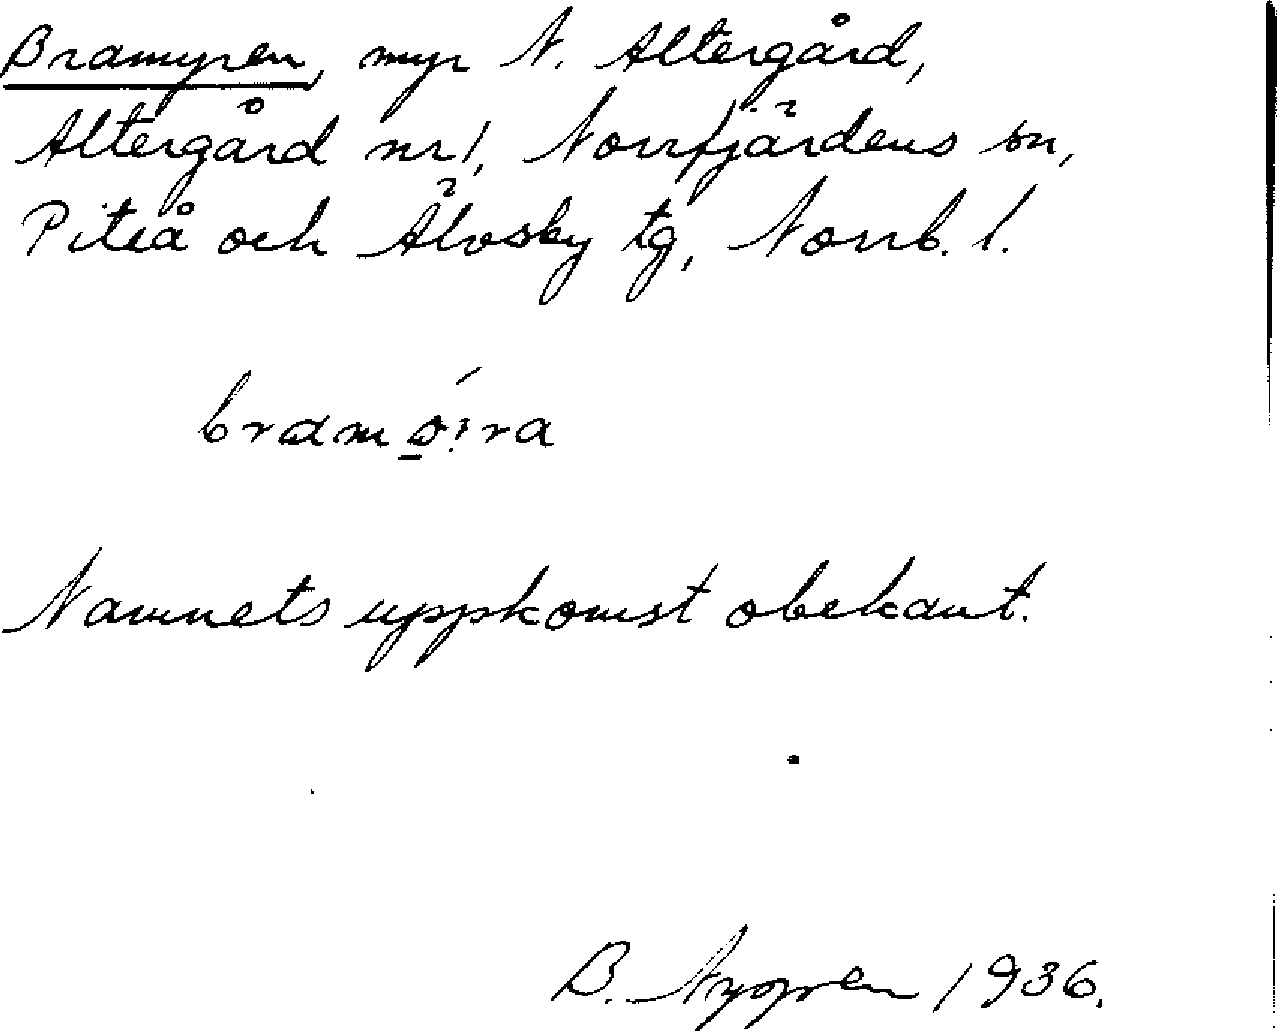 Bramyren, myr N. Altergård,
Altergård nr 1, Norrfjärdens sn,
Piteå och Älvsby tg, Norrb. l.
Namnets uppkomst obekant.
B. Nygren 1936.